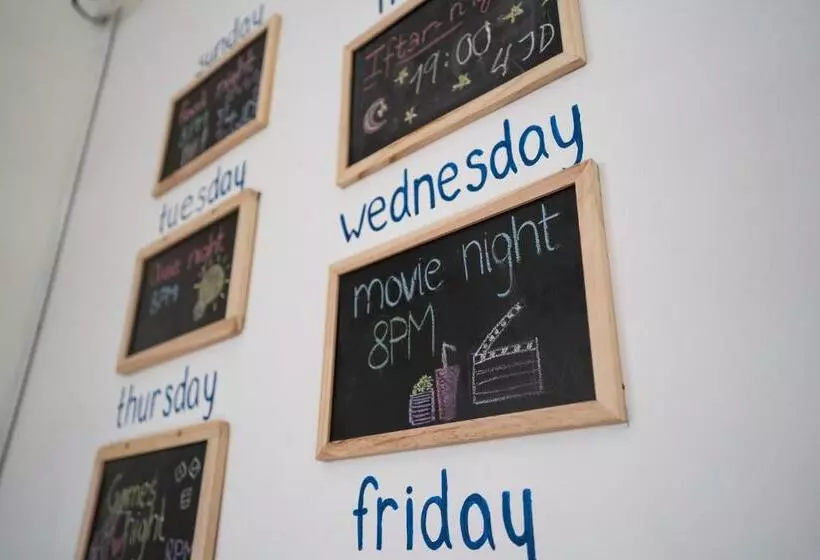 sunday
night
Iftar night
19:00
4 JD
tuesday
night
8PM
wednesday
movie night
8PM
thursday
Games
night
8PM
friday